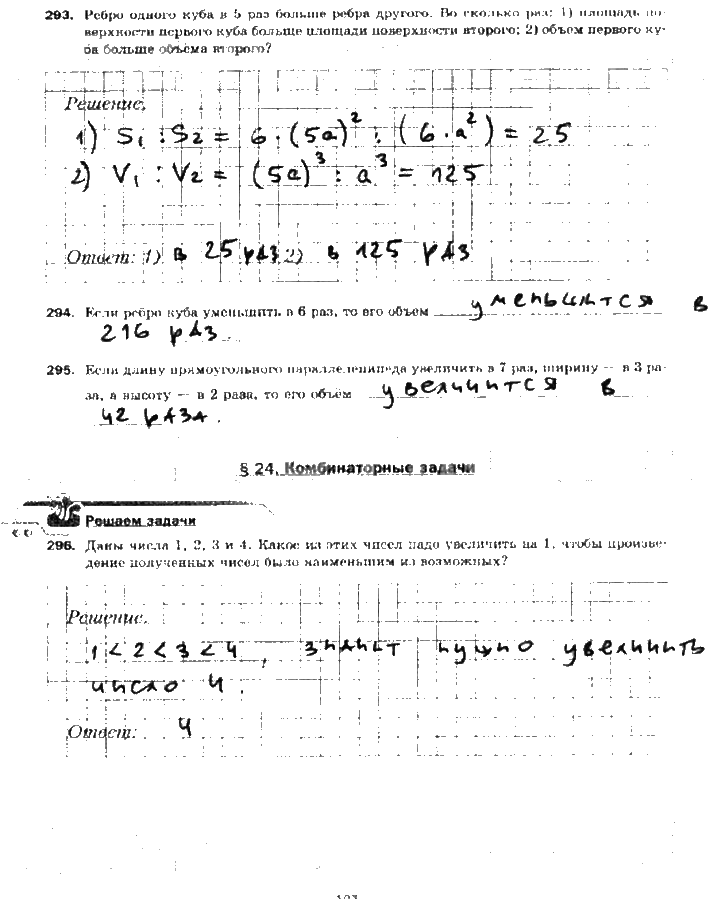 293. Ребро одного куба в 5 раз больше ребра другого. Во сколько раз: 1) площадь по-
верхности первого куба больше площади поверхности второго; 2) объем первого ку-
ба больше объёма второго?
Решение.
1) S₁ : S₂ = 6 · (5a)² : (6 · a²) = 25
2) V₁ : V₂ = (5a)³ : a³ = 125
Ответ: 1) в 25 раз 2) в 125 раз
294. Если ребро куба уменьшить в 6 раз, то его объем уменьшится в
216 раз.
295. Если длину прямоугольного параллелепипеда увеличить в 7 раз, ширину — в 3 ра-
за, а высоту — в 2 раза, то его объём увеличится в
42 раза.
§ 24. Комбинаторные задачи
Решаем задачи
296. Даны числа 1, 2, 3 и 4. Какое из этих чисел надо увеличить на 1, чтобы произве-
дение полученных чисел было наименьшим из возможных?
Решение.
1 < 2 < 3 < 4, значит нужно увеличить
число 4.
Ответ: 4